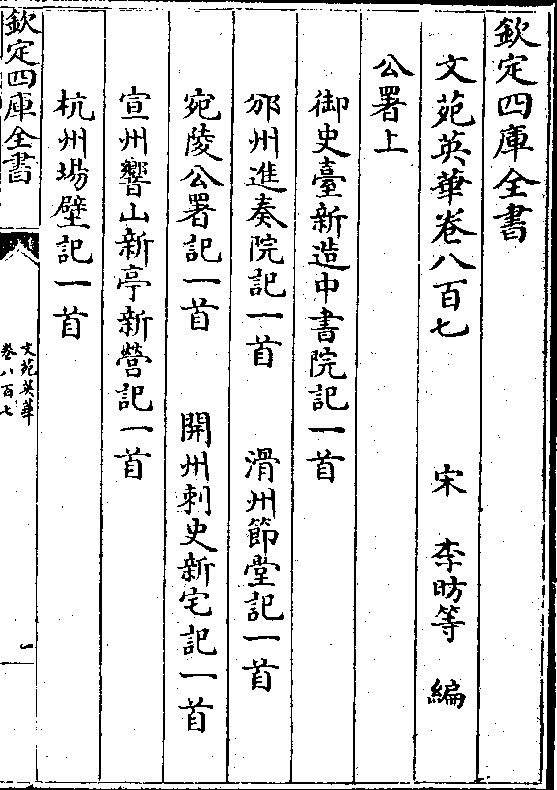 欽定四庫全書
文苑英華卷八百七 宋 李昉等 編
公署上
御史臺新造中書院記一首
邠州進奏院記一首 滑州節堂記一首
宛陵公署記一首 開州刺史新宅記一首
宣州響山新亭新營記一首
杭州場壁記一首
欽定四庫全書
文苑英華
卷八百七
一